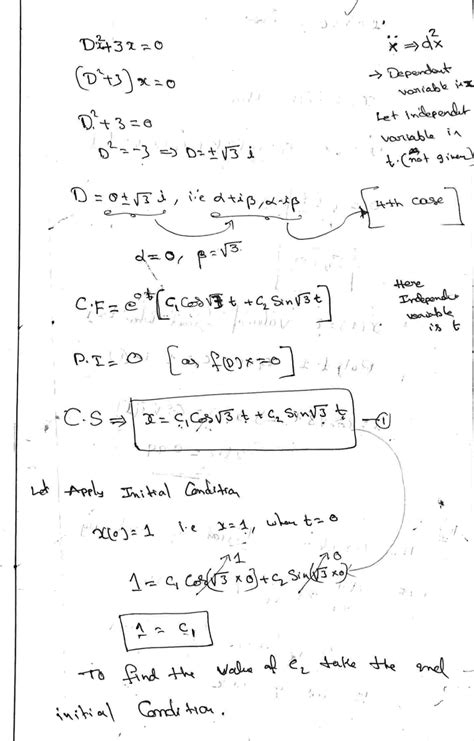 D²x+3x=0
ẍ ⇒ d²x
(D²+3) x=0
→ Dependent variable is x
D²+3=0
Let Independent variable is
D²=-3 ⇒ D=±√3 i
t. (as not given)
D = 0±√3 i, i.e α+iβ, α-iβ
[4-th case]
α=0, β=√3
C.F= e^0t [C₁Cos√3 t + C₂ Sin√3 t]
Here Independ variable is t
P.I= 0 [as f(D)x=0]
C.S ⇒ x = C₁Cos√3 t + C₂ Sin√3 t —①
Let Apply Initial Condition
x(0)=1 i.e x=1, when t=0
1 0
1 = C₁ Cos(√3 ×0)+C₂ Sin(√3 ×0)
1 = C₁
To find the value of C₂ take the 2nd
initial Condition.